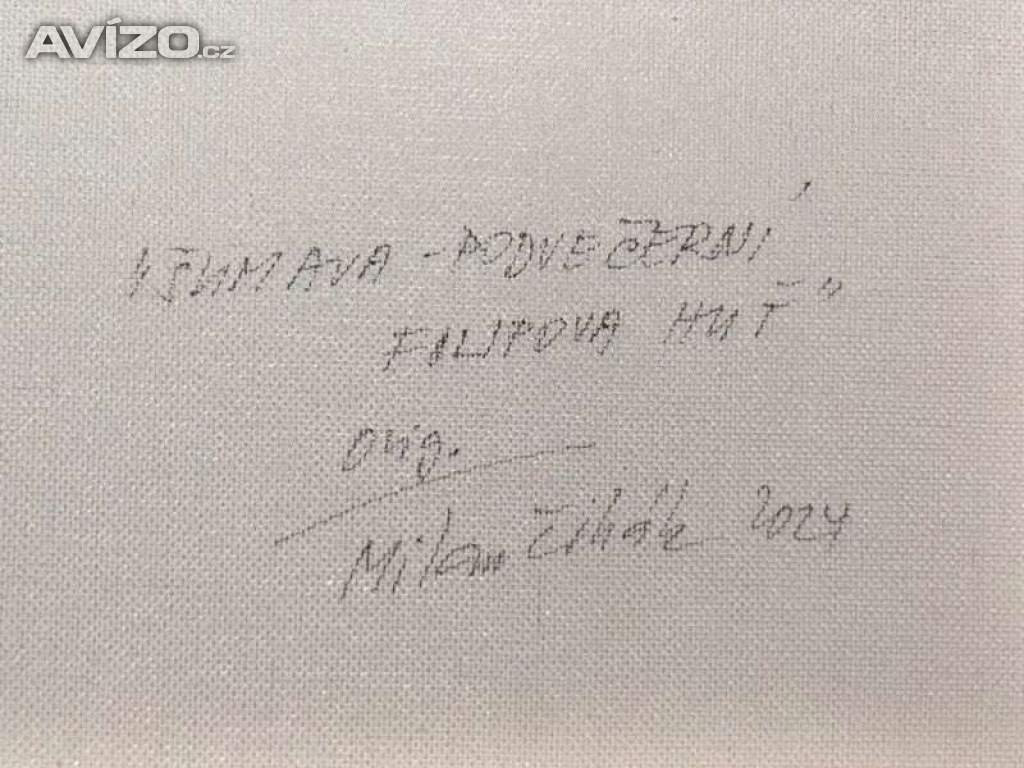 AVÍZO.cz
"ŠUMAVA - PODVEČERNÍ
FILIPOVA HUŤ"
orig.
Milan Čihák 2024